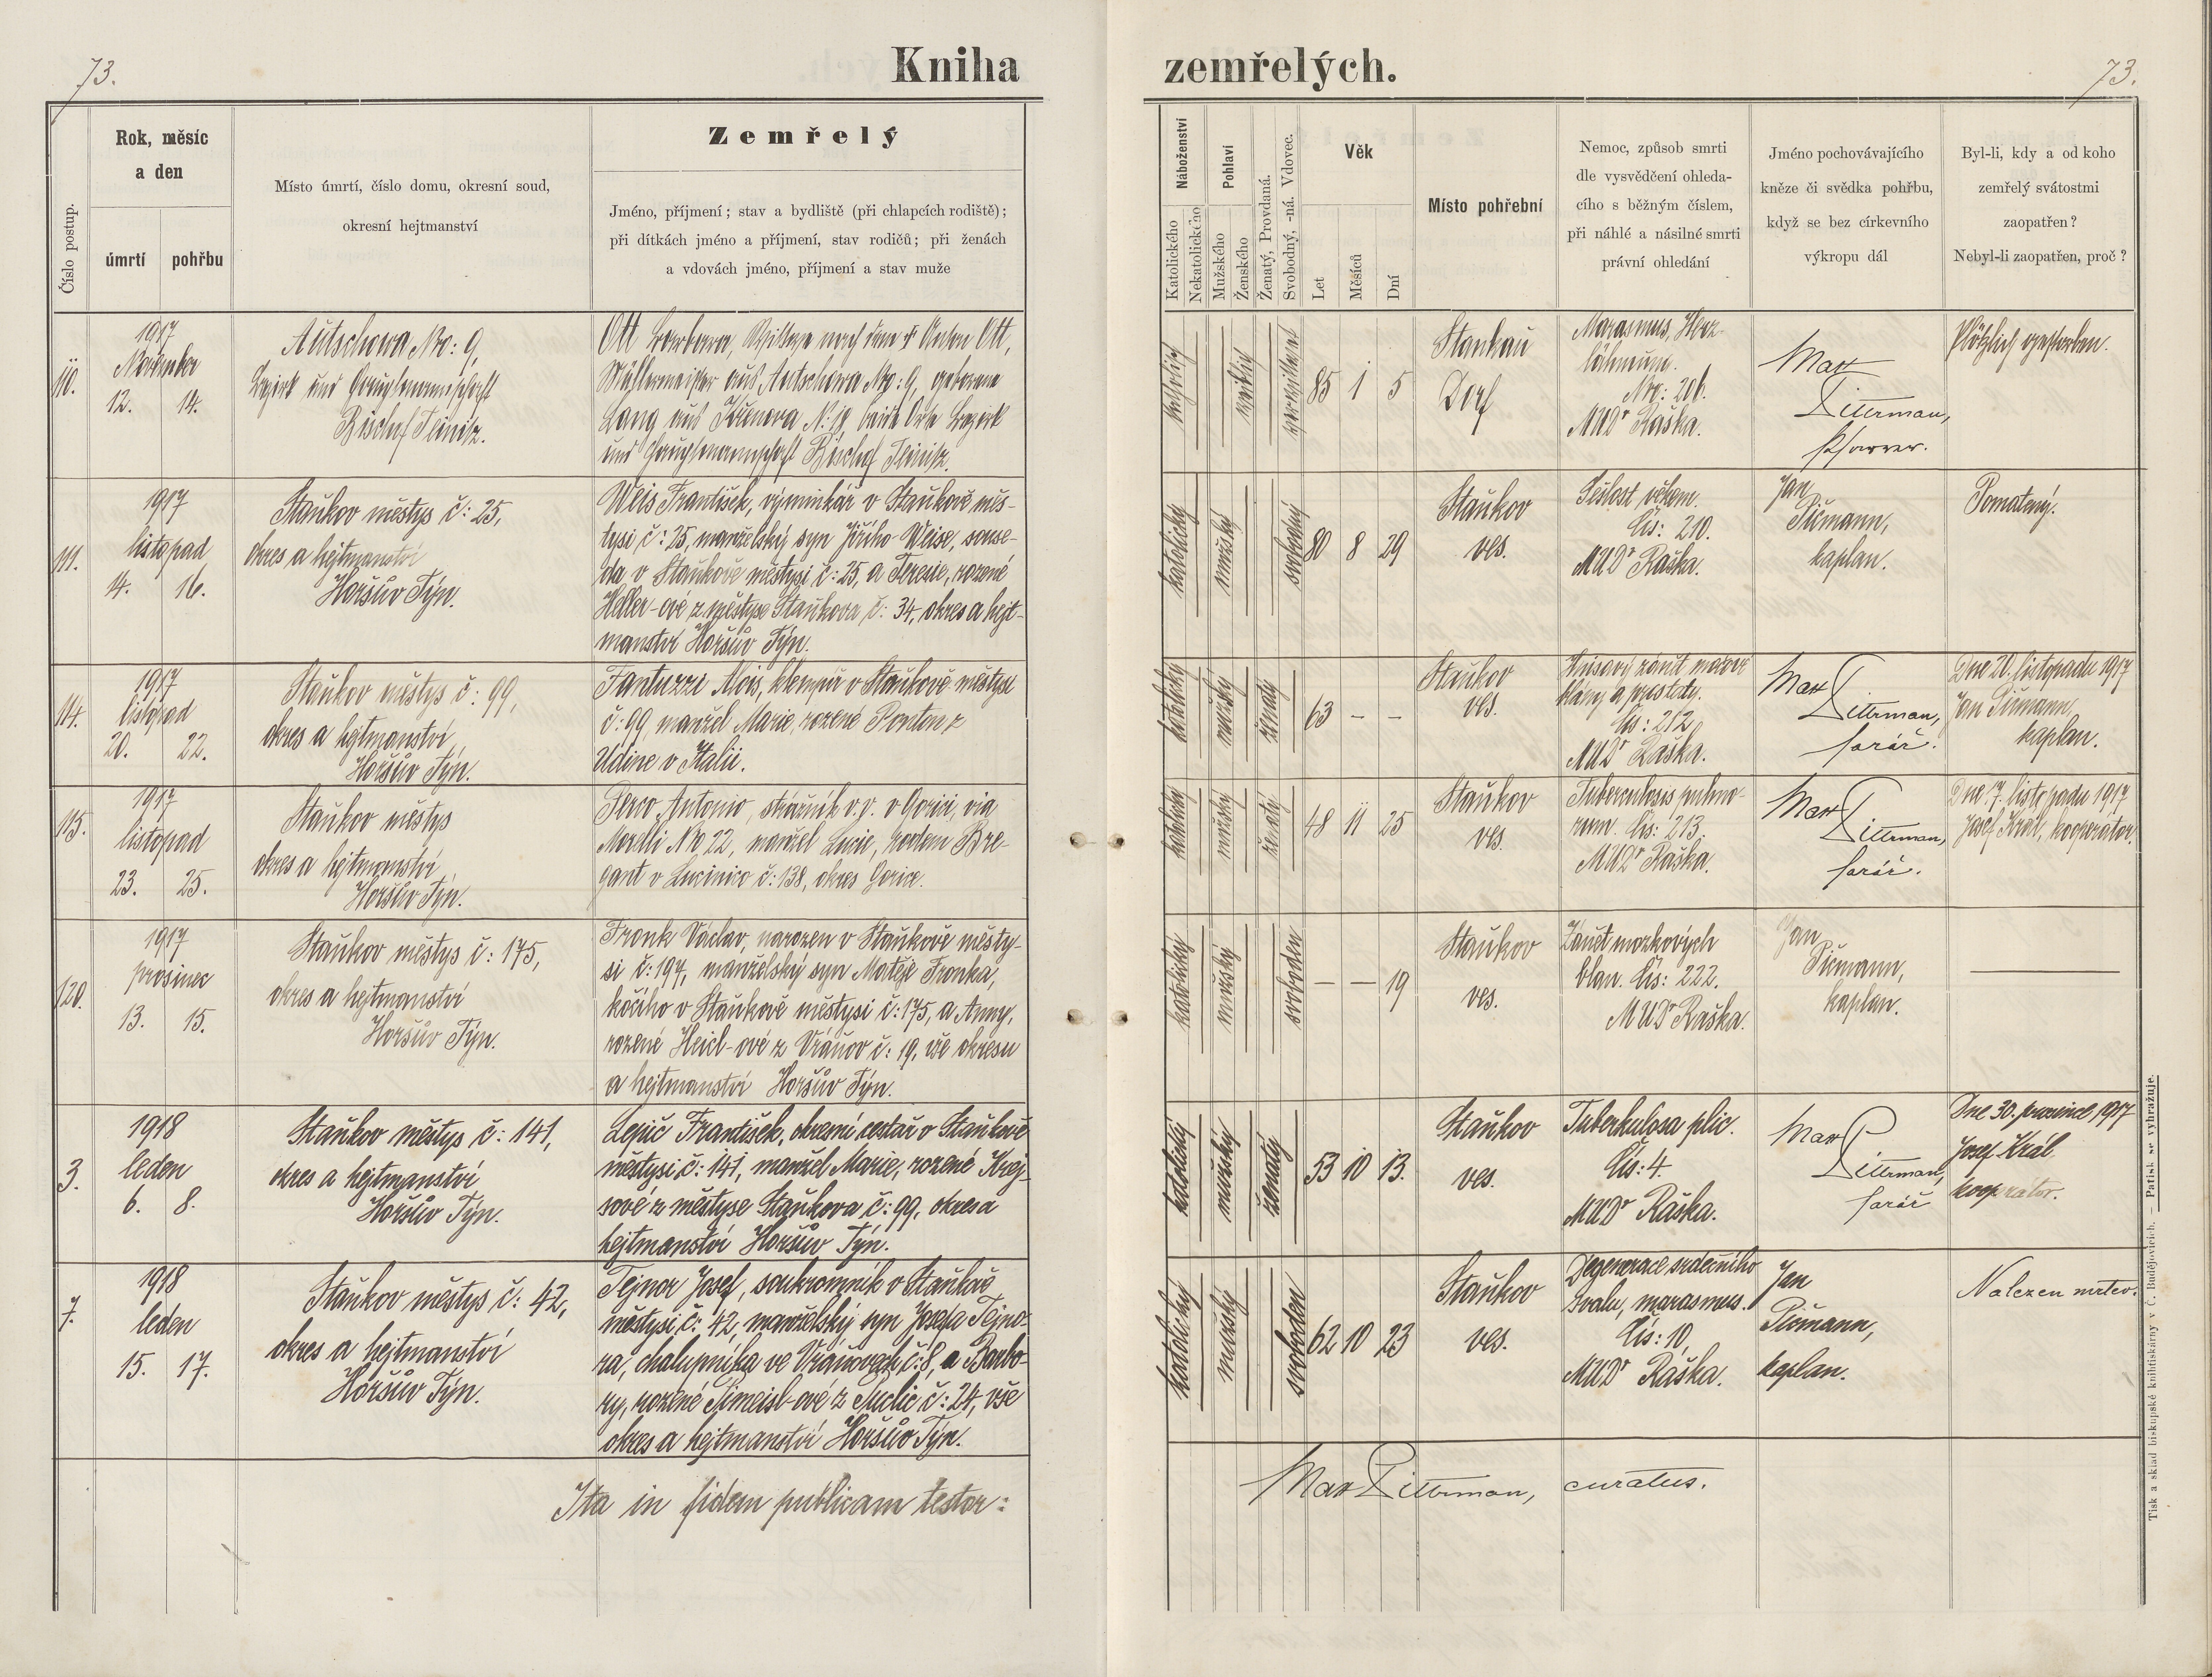 73.
Kniha
zemřelých.
73.
Číslo postup.
Rok, měsíc
a den
úmrtí
pohřbu
Místo úmrtí, číslo domu, okresní soud,
okresní hejtmanství
Zemřelý
Jméno, příjmení; stav a bydliště (při chlapcích rodiště);
při dítkách jméno a příjmení, stav rodičů; při ženách
a vdovách jméno, příjmení a stav muže
Náboženství
Katolického
Nekatolického
Pohlaví
Mužského
Ženského
Ženatý, Provdaná.
Svobodný, -ná. Vdovec.
Věk
Let
Měsíců
Dní
Místo pohřební
Nemoc, způsob smrti
dle vysvědčení ohleda-
cího s běžným číslem,
při náhlé a násilné smrti
právní ohledání
Jméno pochovávajícího
kněze či svědka pohřbu,
když se bez církevního
výkropu dál
Byl-li, kdy a od koho
zemřelý svátostmi
zaopatřen?
Nebyl-li zaopatřen, proč?
110.
1917
November
12. 14.
Autschowa Nro: 9,
Bezirk und Hauptmannschaft
Bischof Teinitz.
Ott Barbara, Witwe nach dem † Anton Ott,
Müllermeister aus Autschowa Nro: 9, geborene
Lang aus Křenova N: 19, beide Orte Bezirk
und Hauptmannschaft Bischof Teinitz.
katholisch
weiblich
verwitwet
85 1 5
Stankau
Dorf
Marasmus, Herz-
lähmung.
Nro: 206.
MUDr Raška.
Max
Litterman,
Pfarrer.
Plötzlich gestorben.
111.
1917
listopad
14. 16.
Staňkov městys č: 25,
okres a hejtmanství
Horšův Týn.
Weis František, výminkář v Staňkově měs-
tysi č: 25, manželský syn Jiřího Weise, souse-
da v Staňkově městysi č: 25, a Terezie, rozené
Heller-ové z městyse Staňkova č: 34, okres a hejt-
manství Horšův Týn.
katolický
mužský
svobodný
80 8 29
Staňkov
ves.
Sešlost věkem.
Čís: 210.
MUDr Raška.
Jan
Pičmann,
kaplan.
Pomatený.
114.
1917
listopad
20. 22.
Staňkov městys č: 99,
okres a hejtmanství
Horšův Týn.
Fantuzzi Alois, klempíř v Staňkově městysi
č: 99, manžel Marie, rozené Ponton z
Udine v Italii.
katolický
mužský
ženatý
63 – –
Staňkov
ves.
Hnisavý zánět
Čís: 212,
MUDr Raška.
Max
Litterman,
farář.
Dne 20. listopadu 1917
Jan Pičmann,
kaplan.
115.
1917
listopad
23. 25.
Staňkov městys
okres a hejtmanství
Horšův Týn.
Perco Antonio, strážník v.v. v Gorici, via
Morelli No 22, manžel Lucie, rodem Bre-
gant v Lucinico č: 138, okres Gorice.
katolický
mužský
ženatý
48 11 25
Staňkov
ves.
Tuberculosis pulmo-
num. Čís: 213.
MUDr Raška.
Max
Litterman,
farář.
Dne 17. listopadu 1917
Josef Král, kooperátor.
120.
1917
prosinec
13. 15.
Staňkov městys č: 175,
okres a hejtmanství
Horšův Týn.
Fronk Václav, narozen v Staňkově městy-
si č: 194, manželský syn Matěje Fronka,
kočího v Staňkově městysi č: 175, a Anny,
rozené Heiel-ové z Vráňov č: 19, vše okresu
a hejtmanství Horšův Týn.
katolický
mužský
svoboden
– – 19
Staňkov
ves.
Zánět mozkových
blan. Čís: 222.
MUDr Raška.
Jan
Pičmann,
kaplan.
3.
1918
leden
6. 8.
Staňkov městys č: 141,
okres a hejtmanství
Horšův Týn.
Lepič František, okresní cestář v Staňkově
městysi č: 141, manžel Marie, rozené Krej-
sové z městyse Staňkova č: 99, okres a
hejtmanství Horšův Týn.
katolický
mužský
ženatý
53 10 13.
Staňkov
ves.
Tuberkulosa plic.
Čís: 4.
MUDr Raška.
Max
Litterman,
farář
Dne 30. prosince 1917
Josef Král
kooperátor.
7.
1918
leden
15. 17.
Staňkov městys č: 42,
okres a hejtmanství
Horšův Týn.
Tejnor Josef, soukromník v Staňkově
městysi č: 42, manželský syn Josefa Tejno-
ra, chalupníka ve Vráňovech č: 8, a Barbo-
ry, rozené z č: 24, vše
okres a hejtmanství Horšův Týn.
katolický
mužský
svoboden
62 10 23
Staňkov
ves.
Degenerace srdečního
svalu, marasmus.
Čís: 10,
MUDr Raška.
Jan
Pičmann,
kaplan.
Nalezen mrtev.
Ita in fidem publicam testor:
Max Litterman, curatus.
Tisk a sklad biskupské knihtiskárny v Č. Budějovicích. – Patisk se vyhražuje.